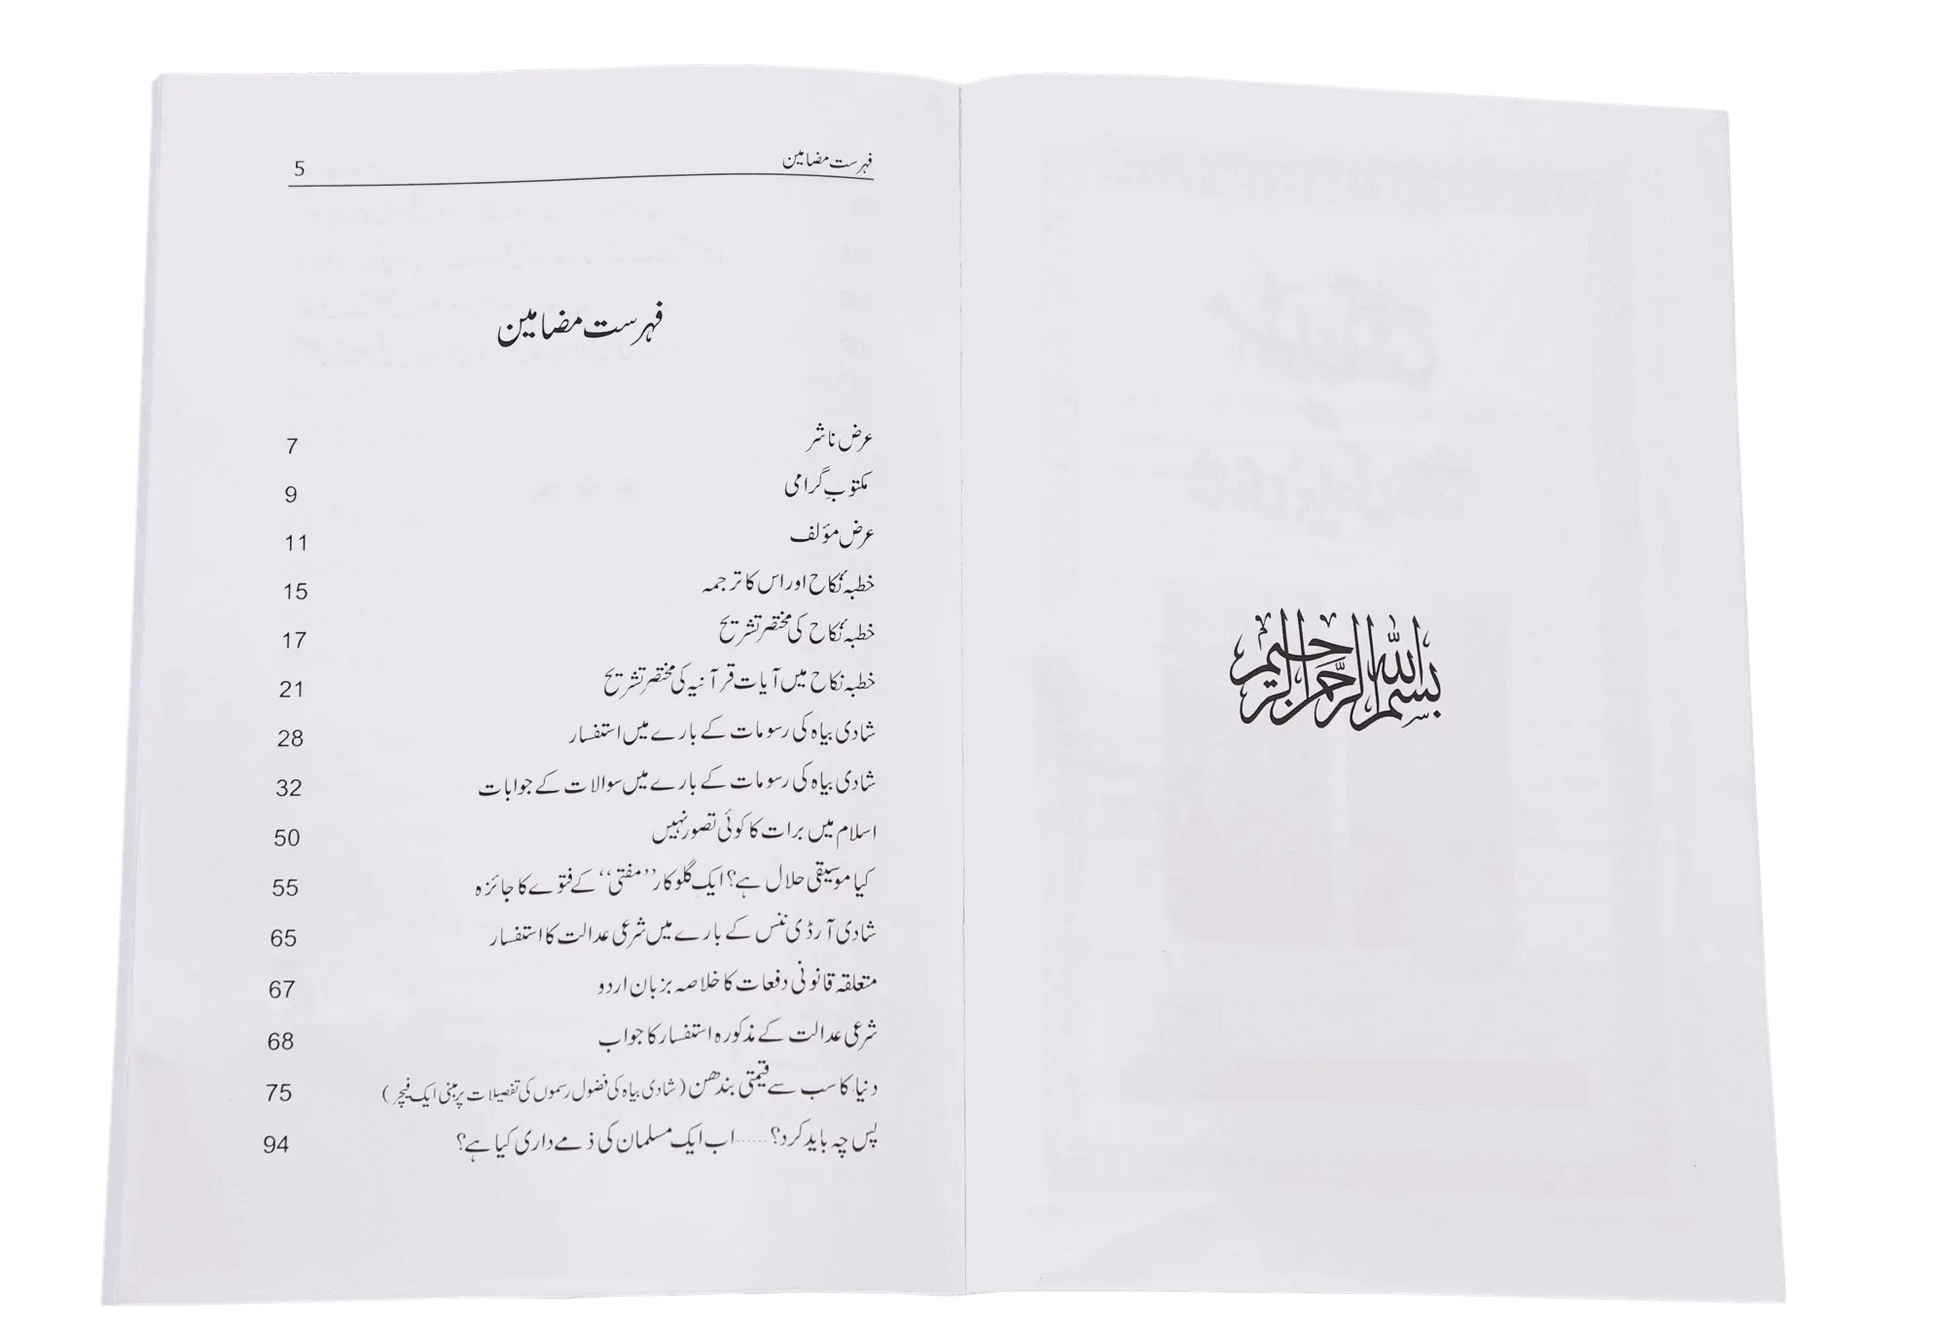 بسم الله الرحمن الرحيم
فہرست مضامین 5
فہرست مضامین
عرض ناشر 7
مکتوبِ گرامی 9
عرض مؤلف 11
خطبۂ نکاح اور اس کا ترجمہ 15
خطبۂ نکاح کی مختصر تشریح 17
خطبہ نکاح میں آیات قرآنیہ کی مختصر تشریح 21
شادی بیاہ کی رسومات کے بارے میں استفسار 28
شادی بیاہ کی رسومات کے بارے میں سوالات کے جوابات 32
اسلام میں برات کا کوئی تصور نہیں 50
کیا موسیقی حلال ہے؟ ایک گلوکار ’’مفتی‘‘ کے فتوے کا جائزہ 55
شادی آرڈی ننس کے بارے میں شرعی عدالت کا استفسار 65
متعلقہ قانونی دفعات کا خلاصہ بزبان اردو 67
شرعی عدالت کے مذکورہ استفسار کا جواب 68
دنیا کا سب سے قیمتی بندھن (شادی بیاہ کی فضول رسموں کی تفصیلات پر مبنی ایک فیچر) 75
پس چہ باید کرد؟......اب ایک مسلمان کی ذمے داری کیا ہے؟ 94